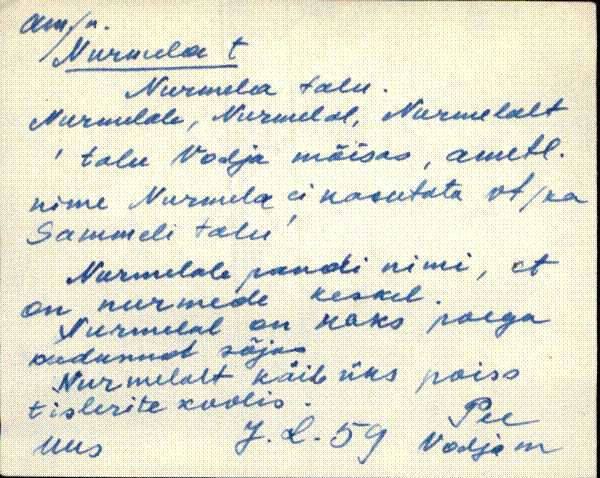 am/n.
Nurmela t
Nurmela talu.
Nurmelale, Nurmelal, Nurmelalt
' talu Vodja mõisas, ametl.
nime Nurmela ei kasutata vt/ka
Sammeli talu'
Nurmelale pandi nimi, et
on nurmede keskel.
Nurmelal on kaks poega
kadunnot sõjas
Nurmelalt käib üks poiss
tislerite koolis.
J. L. 59 Pee
Uus Vodja m